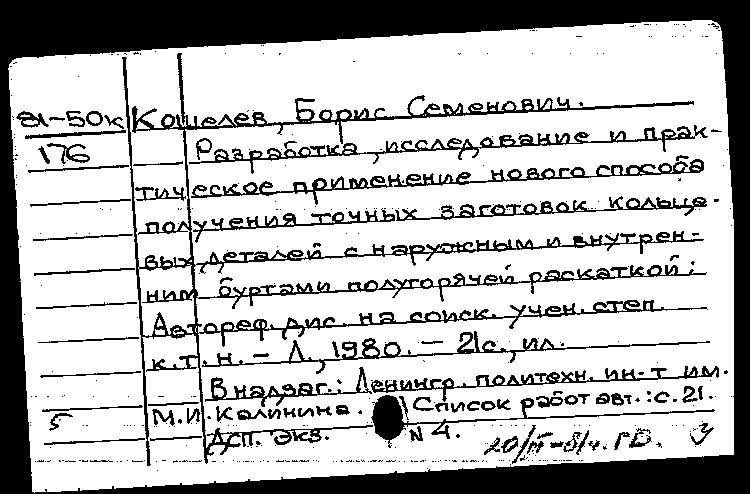 81-50к Кошелев, Борис Семенович.
176 Разработка, исследование и прак-
тическое применение нового способа
получения точных заготовок кольце-
вых деталей с наружным и внутрен-
ним буртами полугорячей раскаткой:
Автореф. дис. на соиск. учен. степ.
к.т.н. - Л., 1980. - 21с., ил.
В надзаг.: Ленингр. политехн. ин-т им.
5 М.И. Калинина. Список работ авт.: с.21.
Дсп. Экз. N 4.